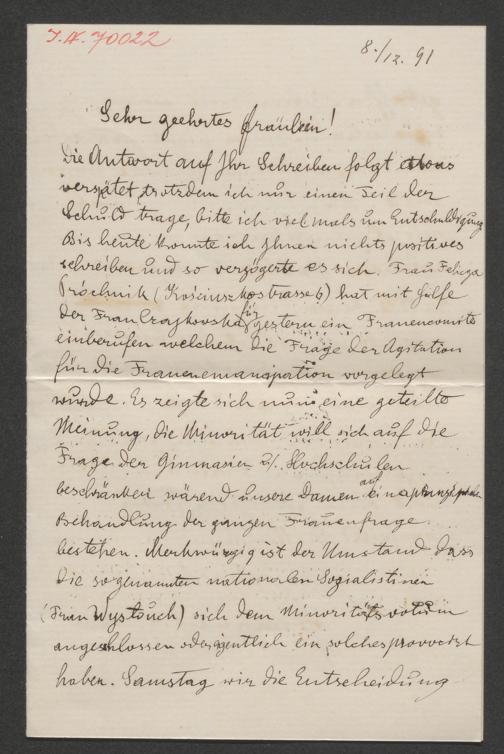 I.N. 70022
8./12. 91
Sehr geehrtes Fräulein!
Die Antwort auf Ihr Schreiben folgt etwas
verspätet, trotzdem ich nur einen Teil der
Schuld trage, bitte ich vielmals um Entschuldigung
Bis heute konnte ich Ihnen nichts positives
schreiben und so verzögerte es sich. Frau Felicya
Próchnik (Kościuszkostrasse 6) hat mit Hülfe
der Frau Czajkowska für gestern ein Frauencomité
einberufen welchem die Frage der Agitation
für die Frauenemanzipation vorgelegt
wurde. Es zeigte sich nun eine geteilte
Meinung, die Minorität will sich auf die
Frage der Gimnasien u. Hochschulen
beschränken wärend unsere Damen auf
Behandlung der ganzen Frauenfrage
bestehen. Merkwürgig ist der Umstand dass
die sogenannten nationalen Sozialistinen
(Frau Wysłouch) sich dem Minoritätsvotum
angeschlossen oder eigentlich ein solches provozirt
haben. Samstag wir die Entscheidung